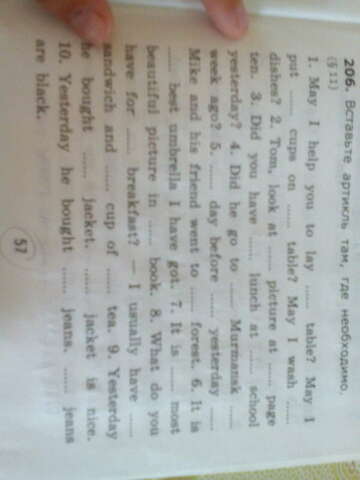 206. Вставьте артикль там, где необходимо.
(§ 11)
1. May I help you to lay ...... table? May I
put ...... cups on ...... table? May I wash ......
dishes? 2. Tom, look at ...... picture at ...... page
ten. 3. Did you have ...... lunch at ...... school
yesterday? 4. Did he go to ...... Murmansk ......
week ago? 5. ...... day before ...... yesterday ......
Mike and his friend went to ...... forest. 6. It is
...... best umbrella I have got. 7. It is ...... most
beautiful picture in ...... book. 8. What do you
have for ...... breakfast? — I usually have ......
sandwich and ...... cup of ...... tea. 9. Yesterday
he bought ...... jacket. ...... jacket is nice.
10. Yesterday he bought ...... jeans. ...... jeans
are black.
57